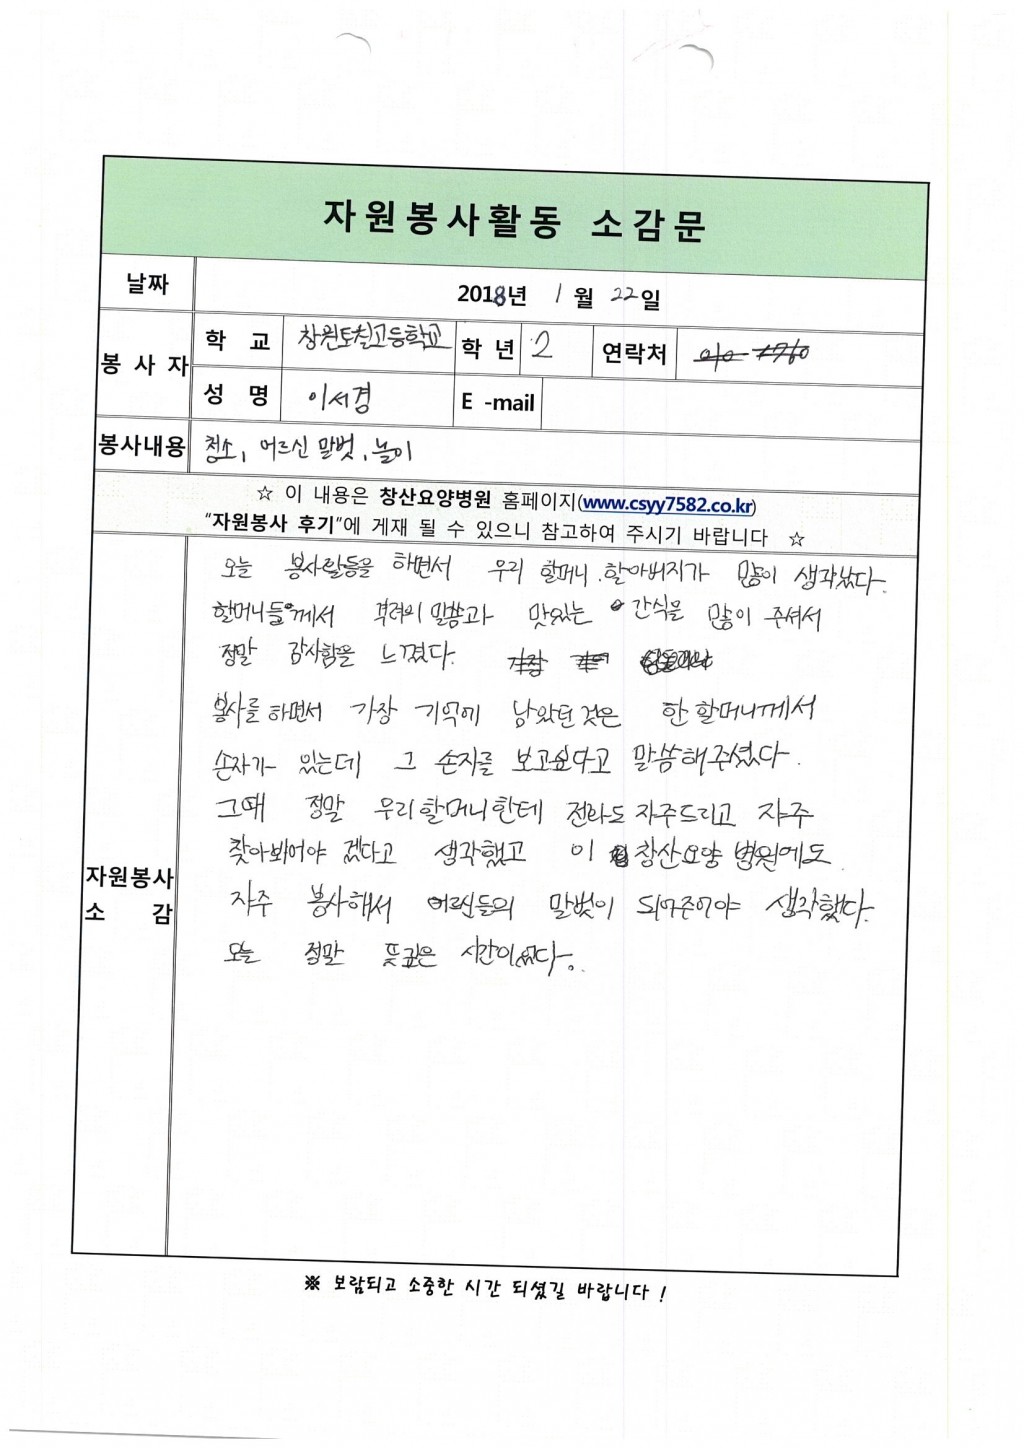 자원봉사활동 소감문
날짜 2018년 1월 22일
봉사자 학교 창원토월고등학교 학년 2 연락처
성명 이서경 E -mail
봉사내용 청소, 어르신 말벗, 놀이
☆ 이 내용은 창산요양병원 홈페이지(www.csyy7582.co.kr)
“자원봉사 후기”에 게재 될 수 있으니 참고하여 주시기 바랍니다 ☆
자원봉사 소감
오늘 봉사활동을 하면서 우리 할머니, 할아버지가 많이 생각났다.
할머니들께서 격려의 말씀과 맛있는 간식을 많이 주셔서
정말 감사함을 느꼈다.
봉사를 하면서 가장 기억에 남았던 것은 한 할머니께서
손자가 있는데 그 손자를 보고싶다고 말씀해주셨다.
그때 정말 우리할머니한테 전화도 자주드리고 자주
찾아봬어야 겠다고 생각했고 이 창산요양 병원에도
자주 봉사해서 어르신들의 말벗이 되어준어야 생각했다.
오늘 정말 뜻깊은 시간이었다.
※ 보람되고 소중한 시간 되셨길 바랍니다 !